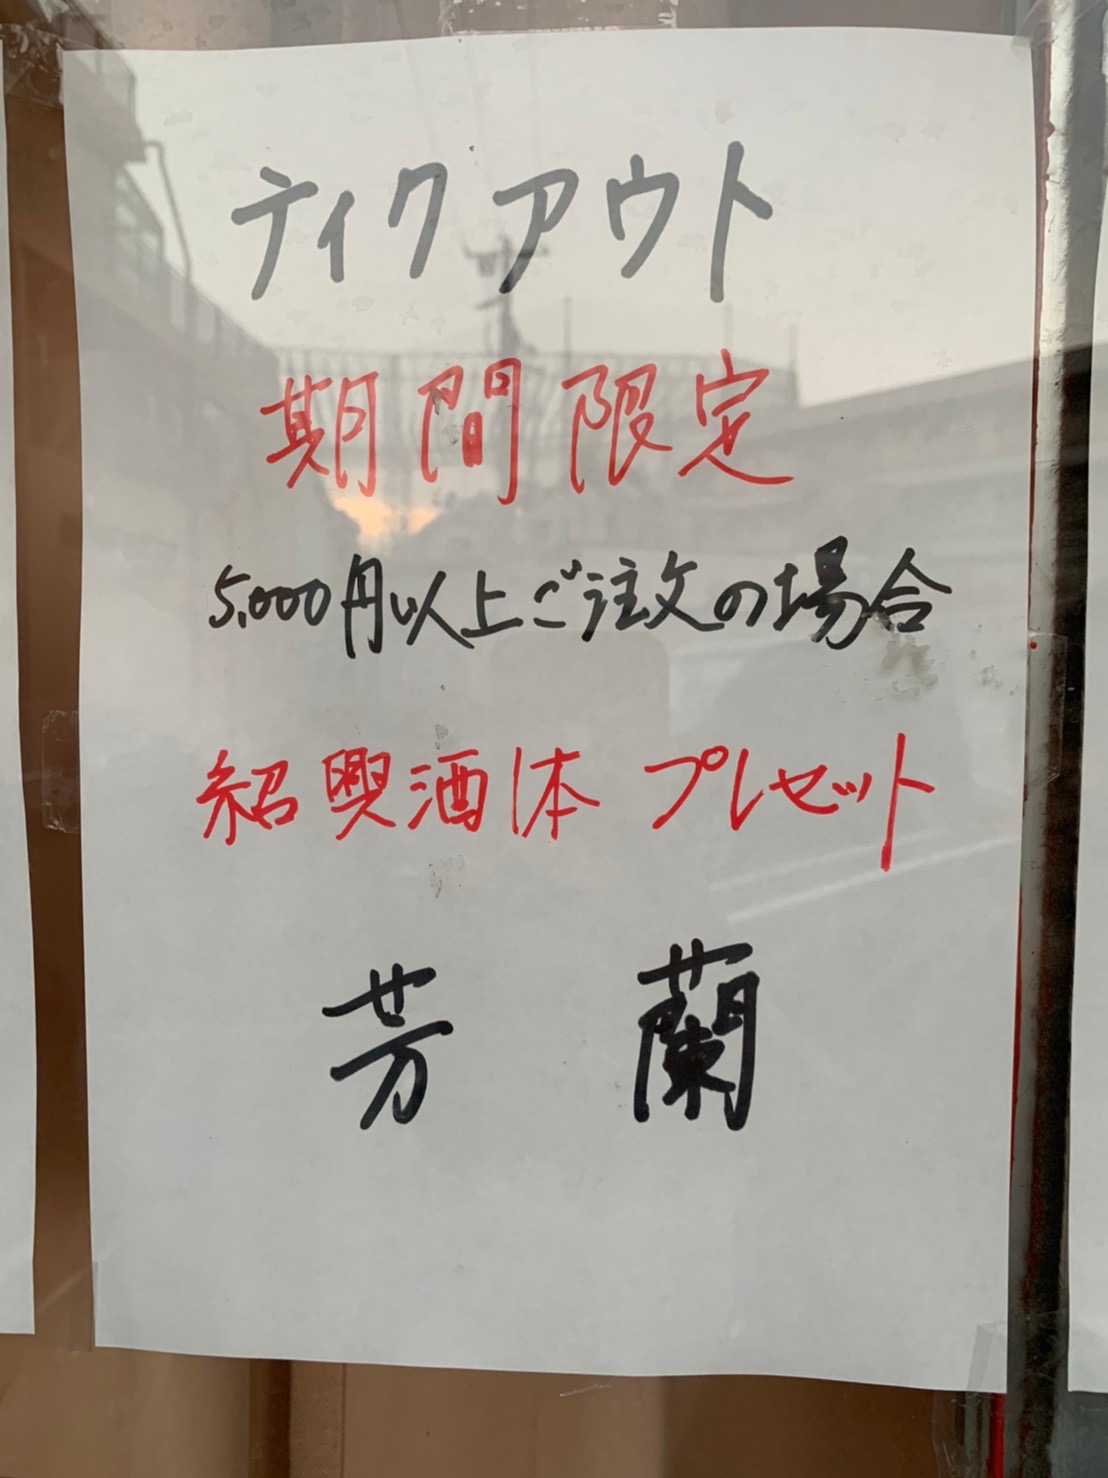 ティクアウト
期間限定
5,000円以上ご注文の場合
紹興酒1本 プレゼット
芳蘭